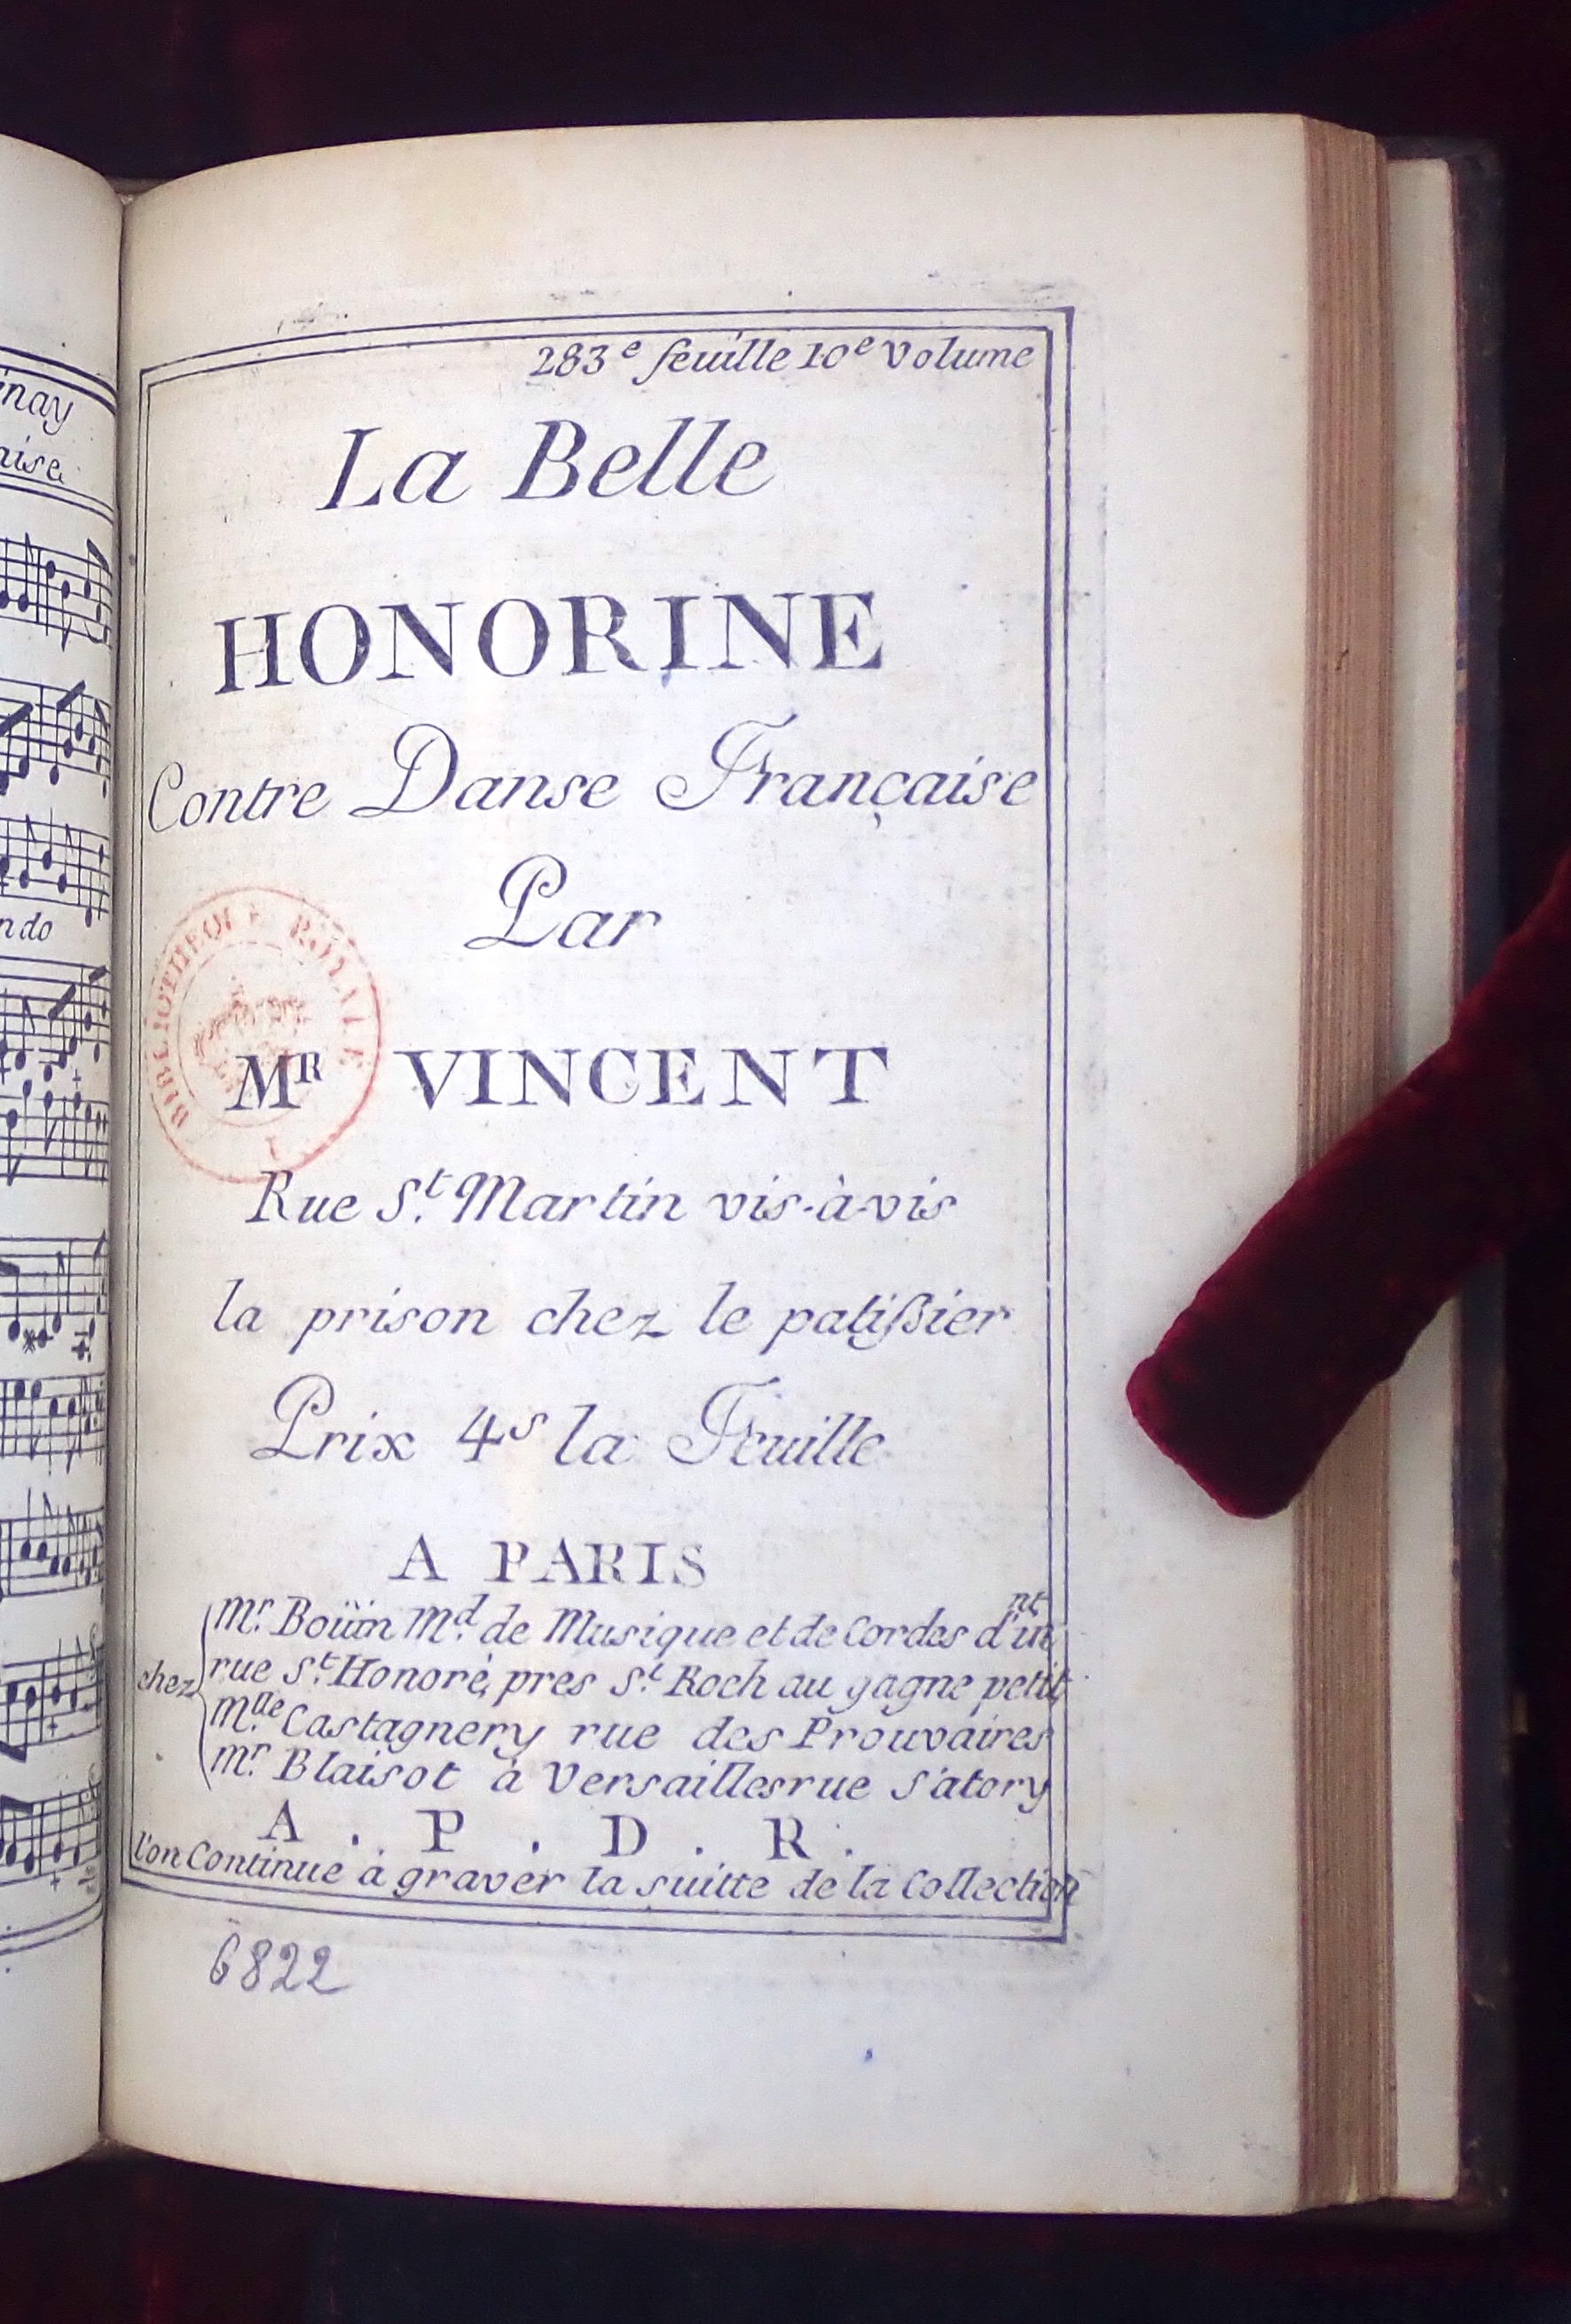 inay
aise.
ndo
283e feuille 10e volume
La Belle
HONORINE
Contre Danse Française
Par
BIBLIOTHEQUE ROYALE
MR VINCENT
Rue St. Martin vis-à-vis
la prison chez le patißier
Prix 4s la Feuille
A PARIS
chez
Mr. Boüin Md. de Musique et de Cordes d'int
rue St. Honoré, pres St. Roch au gagne petit,
Mlle Castagnery rue des Prouvaires
Mr. Blaisot à Versailles rue S'atory
A . P . D . R .
l'on Continue à graver la suitte de la Collection
6822